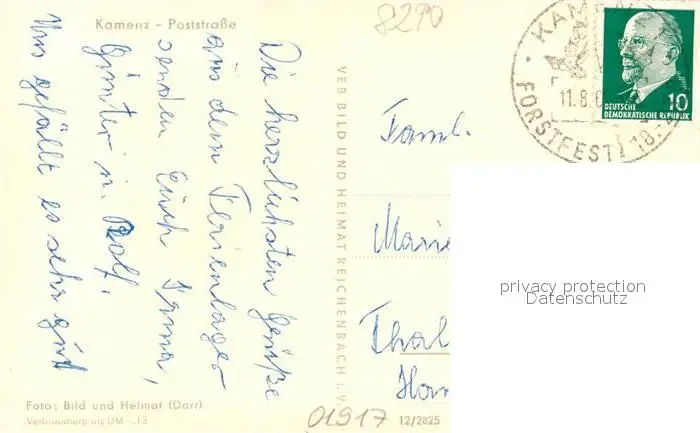 Kamenz - Poststraße
8290
KAMENZ
11.8.6
FORSTFEST 18.-2
DEUTSCHE
DEMOKRATISCHE REPUBLIK
10
Die herzlichsten Grüße
aus dem Ferienlager
senden Euch Irma,
Günter u. Rolf.
Uns gefällt es sehr gut
VEB BILD UND HEIMAT REICHENBACH i. V.
Faml.
Marie
Thal
Har
privacy protection
Datenschutz
Foto: Bild und Heimat (Darr)
Verbraucherpreis DM -.15
01917
12/2825